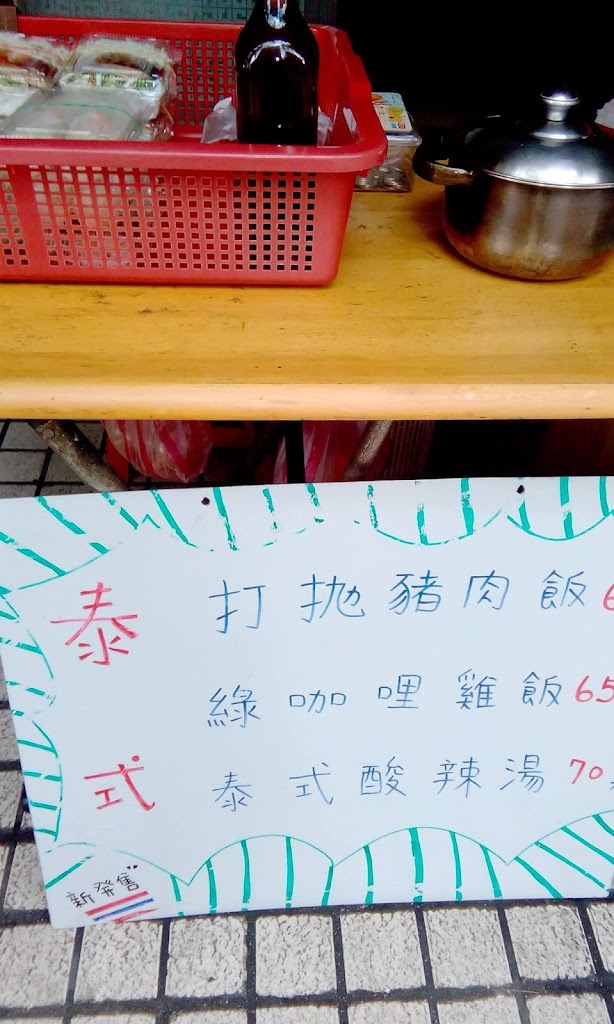 泰式
打拋豬肉飯 6
綠咖哩雞飯 65
泰式酸辣湯 70
新發售